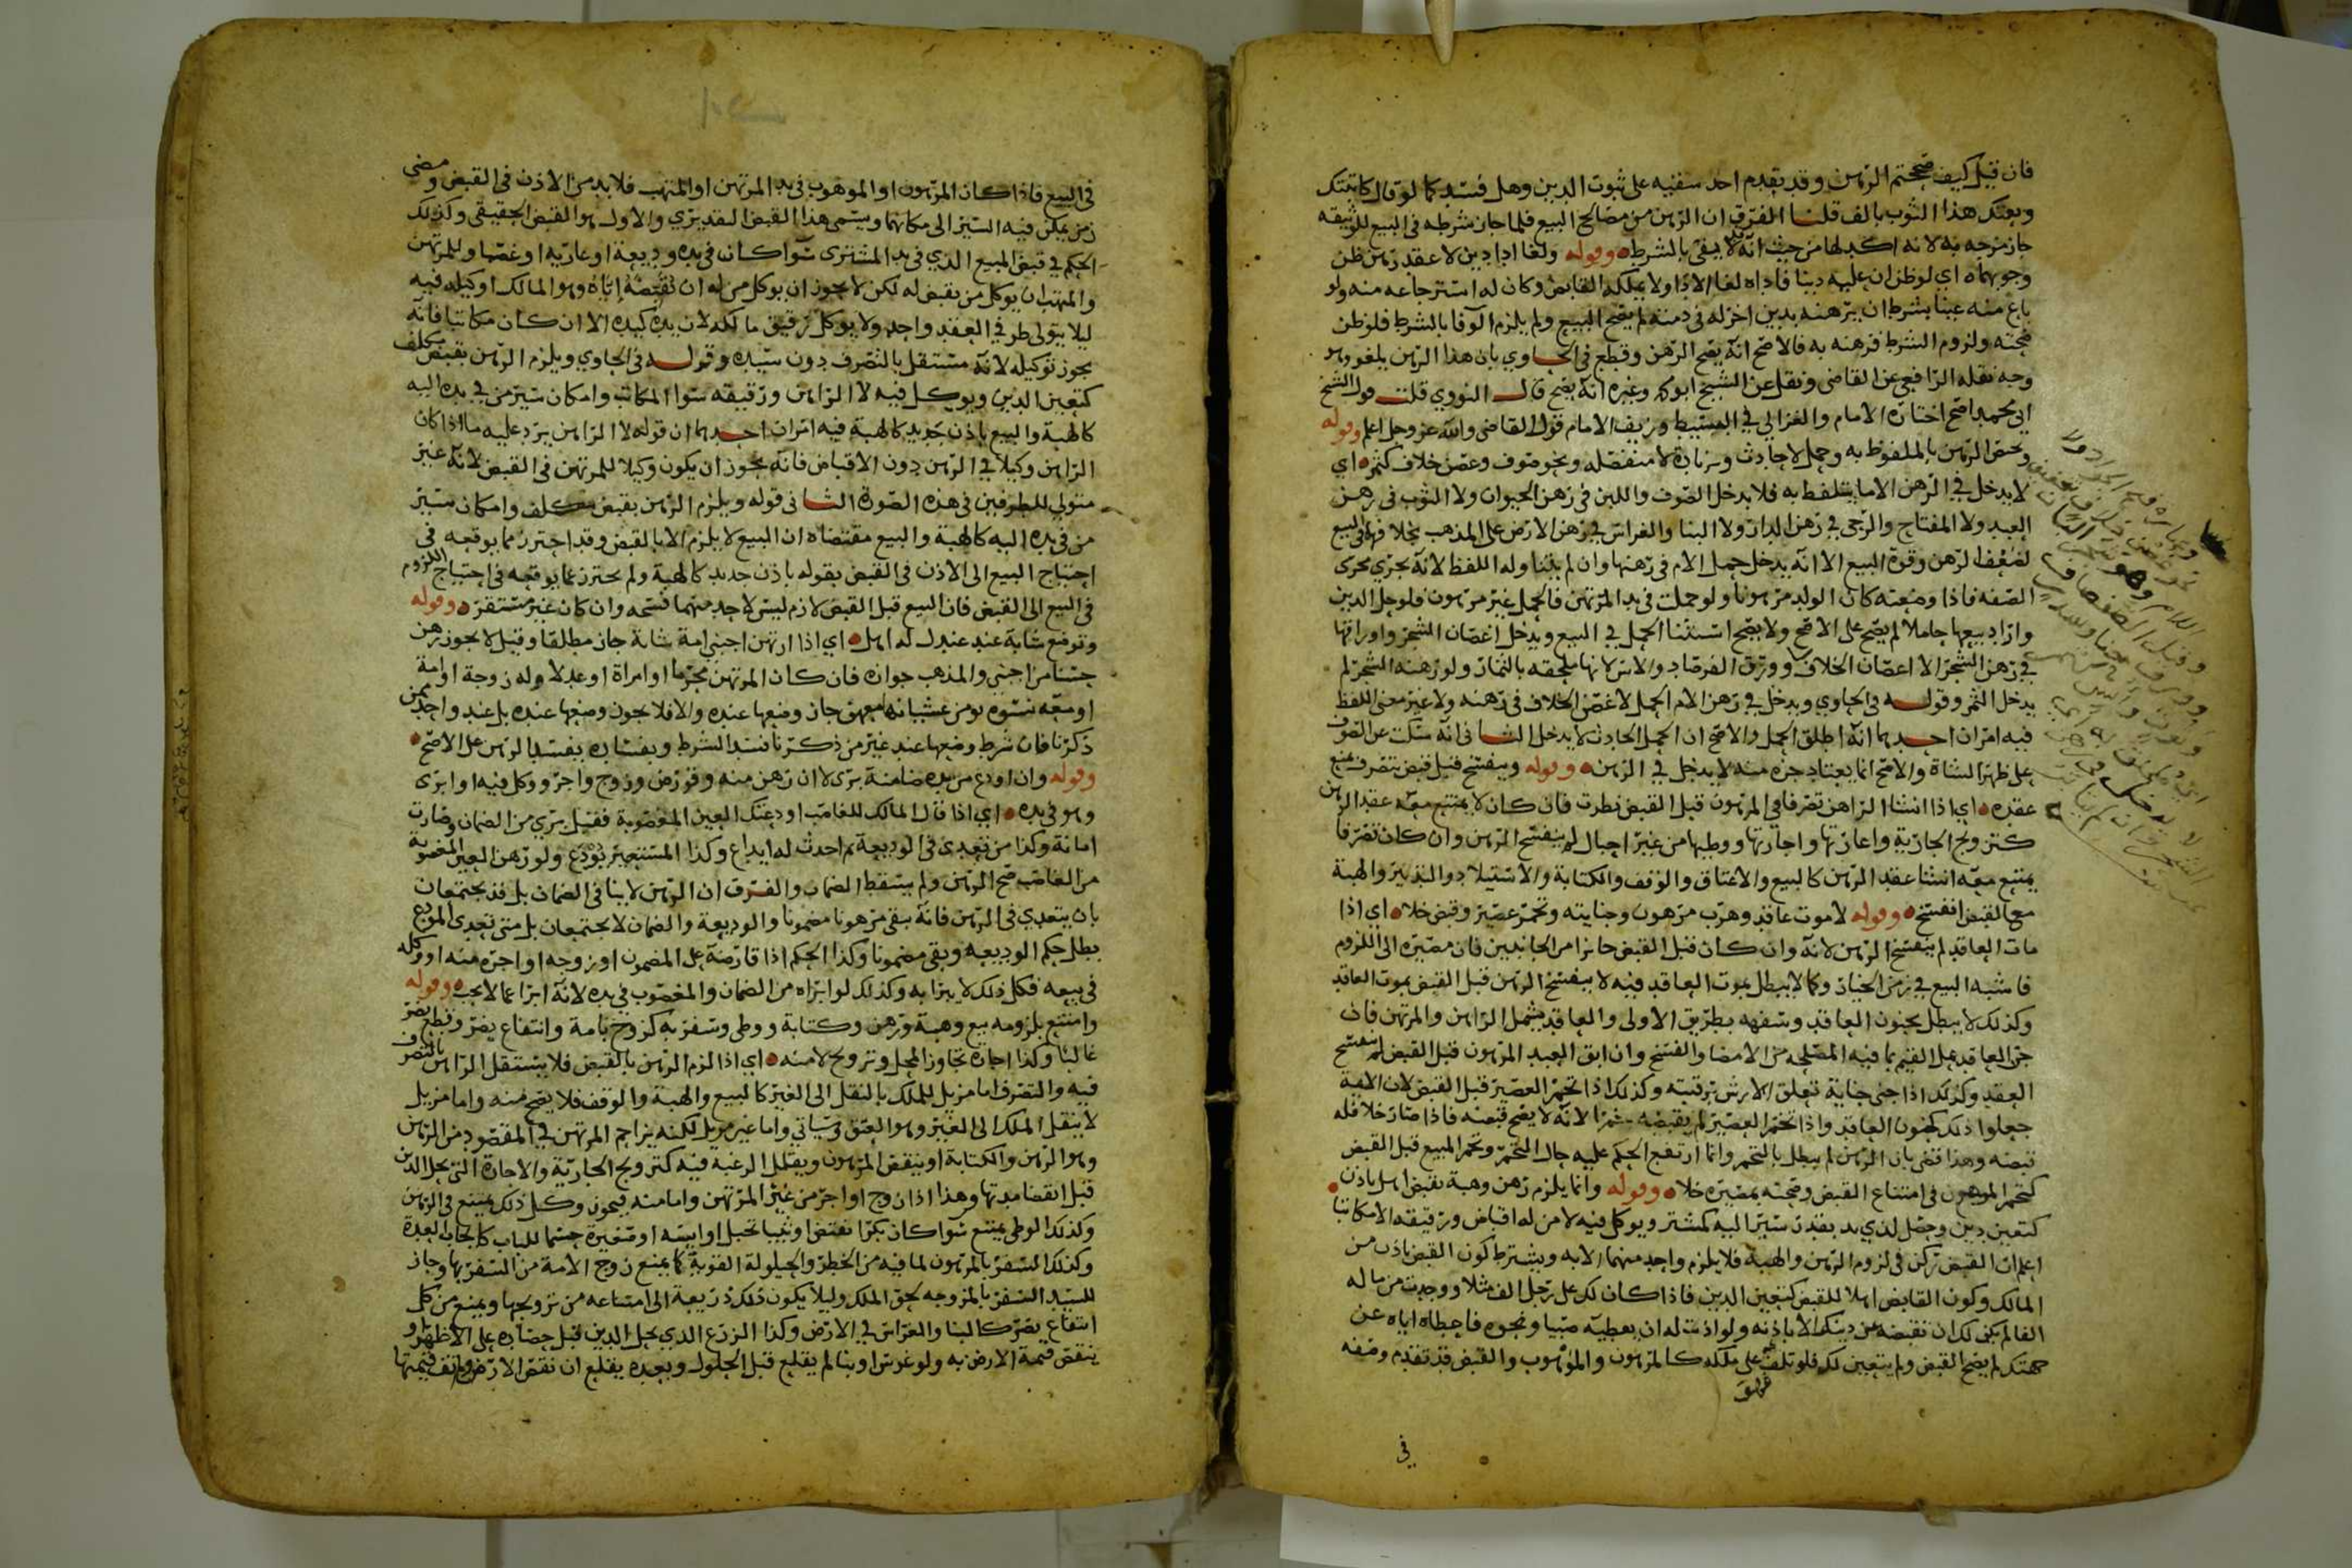 فان قيل كيف صححتم الرهن وقد تقدم احد سقيه على ثبوت الدين وهل فسد كما لو قال كاتبتك
وبعتك هذا الثوب بالف قلنا الفرق ان الرهن من مصالح البيع فلما جاز شرطه في البيع للوثيقه
جاز مزجه به لانه اكد لها من حيث انه لا يفي بالشرط وقوله ولغا اداء دين لا عقد رهن ظن
وجوبهما اي لو ظن ان عليه دينا فاداه لغا الاداء ولا يملكه القابض وكان له استرجاعه منه ولو
باع منه عينا بشرط ان يرهنه بدين اخر له في ذمته لم يصح البيع ولم يلزم الوفا بالشرط فلو ظن
صحته ولزوم الشرط فرهنه به فالاصح انه يصح الرهن وقطع في الحاوي بان هذا الرهن يلغو وهو
وجه نقله الرافعي عن القاضي ونقل عن الشيخ ابو محمد وغيره انه يصح قال النووي قلت قول الشيخ
ابي محمد اصح اختاره الامام والغزالي في البسيط وزيف الامام قول القاضي والله عز وجل اعلم وقوله
وخص الرهن بالملفوظ به وحمل لا حادث وزيادة لا منفصله ونحو صوف وغصن خلاف كثمر اي
لا يدخل في الرهن الا ما يتلفظ به فلا يدخل الصوف واللبن في رهن الحيوان ولا الثوب في رهن
العبد ولا المفتاح والرحى في رهن الدار ولا البنا والغراس في رهن الارض على المذهب بخلافها في البيع
لضعف الرهن وقوة البيع الا انه يدخل حمل الام في رهنها وان لم يتناوله اللفظ لانه يجري مجرى
الصفه فاذا وضعته كان الولد مرهونا ولو حملت في يد المرتهن فالحمل غير مرهون فلو حل الدين
واراد بيعها حاملا لم يصح على الاصح ولا يصح استثنا الحمل في البيع ويدخل اغصان الشجر واوراقها
في رهن الشجر الا اغصان الخلاف وورق الفرصاد والاس لانها ملحقه بالثمار ولو رهنه الشجر لم
يدخل الثمر وقوله في الحاوي ويدخل في رهن الام الحمل لا غصن الخلاف في رهنه ولا غير معنى اللفظ
فيه امران احدهما انه اطلق الحمل والاصح ان الحمل الحادث لا يدخل الثاني انه سكت عن الصوف
على ظهر الشاة والاصح انما يعتاد جزه منه لا يدخل في الرهن وقوله وينفسخ قبل قبض بتصرف يمنع
عقده اي اذا انشا الراهن تصرفا في المرهون قبل القبض نظرت فان كان لا يمتنع معه عقد الرهن
كتزويج الجارية واعارتها واجارتها ووطيها من غير احبال لم ينفسخ الرهن وان كان تصرفا
يمتنع معه انشا عقد الرهن كالبيع والاعتاق والوقف والكتابة والاستيلاد والتدبير والهبة
مع القبض انفسخ وقوله لا موت عاقد وهرب مرهون وجنايته وتخمر عصير وقبض خلا اي اذا
مات العاقد لم ينفسخ الرهن لانه وان كان قبل القبض جائزا من الجانبين فان مصيره الى اللزوم
فاشبه البيع في زمن الخيار وكما لا يبطل بموت العاقد فيه لا ينفسخ الرهن قبل القبض بموت العاقد
وكذلك لا يبطل بجنون العاقد وسفهه بطريق الاولى والعاقد يشمل الراهن والمرتهن فان
جن العاقد عمل القيم بما فيه المصلحة من الامضا والفسخ وان ابق العبد المرهون قبل القبض لم ينفسخ
العقد وكذلك اذا جنى جناية تعلق الارش برقبته وكذلك اذا تخمر العصير قبل القبض لان الايمة
جعلوا ذلك كجنون العاقد واذا تخمر العصير لم يقبضه خمرا لانه لا يصح قبضه فاذا صار خلا فله
قبضه وهذا قضى بان الرهن لم يبطل بالتخمر وانما ارتفع الحكم عليه حال التخمر وتخمر المبيع قبل القبض
كتخمر المرهون في امتناع القبض وصحته بمصيره خلا وقوله وانما يلزم رهن وهبة بقبض اهل باذن
كتعيين دين وحصل لذي يد بقدر سير اليه كمشتر ويوكل فيه لا من له اقباض ورقيقه الا مكاتبا
اعلم ان القبض ركن في لزوم الرهن والهبة فلا يلزم واحد منهما الا به ويشترط كون القبض باذن من
المالك وكون القابض اهلا للقبض كتعيين الدين فاذا كان لك على رجل الف مثلا ووجدت من ماله
الفا لم يكن لك ان تقبضه عن دينك الا باذنه ولو اذنت له ان يعطيه صبيا ونحوه فاعطاه اياه عن
جهتك لم يصح القبض ولم يتعين لك فلو تلف على ملكه كالمرهون والموهوب والقبض قد تقدم وصفه
في
في البيع فاذا كان المرهون او الموهوب في يد المرتهن او المتهب فلا بد من الاذن في القبض ومضى
زمن يمكن فيه السير الى مكانهما ويسمى هذا القبض التقديري والاول هو القبض الحقيقي وكذلك
الحكم في قبض المبيع الذي في يد المشتري سوا كان في يده وديعة او عارية او غصبا وللمرتهن
والمتهب ان يوكل من يقبض له لكن لا يجوز ان يوكل من له ان يقبضه اياه وهو المالك او وكيله فيه
ليلا يتولى طرفي العقد واحد ولا يوكل رقيق مالكه لان يده كيده الا ان كان مكاتبا فانه
يجوز توكيله لانه مستقل بالتصرف دون سيده وقوله في الحاوي ويلزم الرهن بقبض مكلف
كتعيين الدين ويوكل فيه لا الراهن ورقيقه سوا المكاتب وامكان سير من في يده اليه
كالهبة والبيع باذن جديد كالهبة فيه امران احدهما ان قوله لا الراهن يرد عليه ما اذا كان
الراهن وكيلا في الرهن دون الاقباض فانه يجوز ان يكون وكيلا للمرتهن في القبض لانه غير
متولي للطرفين في هذه الصورة الثاني قوله ويلزم الرهن بقبض مكلف وامكان سير
من في يده اليه كالهبة والبيع مقتضاه ان البيع لا يلزم الا بالقبض وقد احترز مما يوقعه في
احتياج البيع الى الاذن في القبض بقوله باذن جديد كالهبة ولم يحترز عما يوقعه في احتياج اللزوم
في البيع الى القبض فان البيع قبل القبض لازم ليس لاحد منهما فسخه وان كان غير مستقر وقوله
وتوضع شابة عند عدل له اهل اي اذا ارتهن اجنبي امة شابة جاز مطلقا وقيل لا يجوز رهن
حسنا من اجنبي والمذهب جوازه فان كان المرتهن محرما او امراة او عدلا وله زوجة او امة
او معه نسوه يومن غشيانه معهن جاز وضعها عنده والا فلا يجوز وضعها عنده بل عند واحد ممن
ذكرنا فان شرط وضعها عند غير من ذكرنا فسد الشرط وبفساده يفسد الرهن على الاصح
وقوله وان اودع من يده ضامنة برى لا ان رهن منه وقورض وزوج واجر ووكل فيه او ابرى
وهو في يده اي اذا قال المالك للغاصب اودعتك العين المغصوبة فقيل برى من الضمان وصارت
امانة وكذا من تعدى في الوديعة ثم احدث له ايداع وكذا المستعير يودع ولو رهن العين المغصوبة
من الغاصب صح الرهن ولم يسقط الضمان والفرق ان الرهن لا ينا في الضمان بل قد يجتمعان
بان يتعدى في الرهن فانه يبقى مرهونا مضمونا والوديعة والضمان لا يجتمعان بل متى تعدى المودع
بطل حكم الوديعة وبقي مضمونا وكذا الحكم اذا قارضه على المضمون او زوجه او اجره منه او وكله
في بيعه فكل ذلك لا يبرا به وكذلك لو ابراه من الضمان والمغصوب في يده لانه ابرا عما لا يجب وقوله
وامتنع بلزومه بيع وهبة ورهن وكتابة ووطى وسفر به كزوج بامة وانتفاع يضر وقطع يضر
غالبا وكذا اجارة تجاوز المحل وتزويج لا منه اي اذا لزم الرهن بالقبض فلا يستقل الراهن بالتصرف
فيه والتصرف اما مزيل للملك بالنقل الى الغير كالبيع والهبة والوقف فلا يصح منه واما مزيل
لا ينقل الملك الى الغير وهو العتق وسياتي واما غير مزيل لكنه يزاحم المرتهن في المقصود من الرهن
وهو الرهن والكتابة او ينقص المرهون ويقلل الرغبة فيه كتزويج الجارية والاجارة التي يحل الدين
قبل انقضا مدتها وهذا اذا زوج او اجر من غير المرتهن واما منه فيجوز وكل ذلك يمتنع في الرهن
وكذلك الوطى يمتنع سوا كان بكرا تفتض او ثيبا تحبل او ايسه او صغيرة حسما للباب كايجاب العدة
وكذلك السفر بالمرهون لما فيه من الخطر والحيلولة القوية كما يمنع زوج الامة من السفر بها وجاز
للسيد السفر بالمزوجه لحق الملك وليلا يكون ذلك ذريعة الى امتناعه من تزويجها ويمنع من كل
انتفاع يضر كالبنا والغراس في الارض وكذا الزرع الذي يحل الدين قبل حصاده على الاظهر او
ينقص قيمة الارض به ولو غرس او بنا لم يقلع قبل الحلول وبعده يقلع ان نقص الارض ولم تف قيمتها